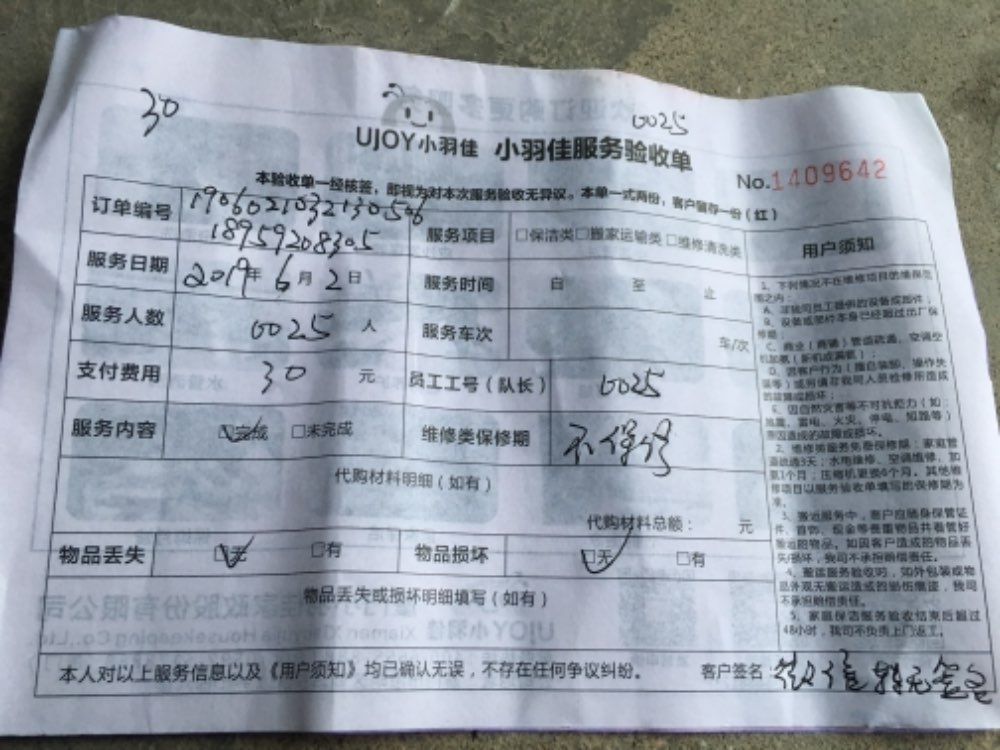 30
0025
UJOY小羽佳 小羽佳服务验收单
No.1409642
本验收单一经核签，即视为对本次服务验收无异议。本单一式两份，客户留存一份（红）
订单编号 1906021032130506
18959208305
服务项目 □保洁类□搬家运输类□维修清洗类
服务日期 2019年6月2日
服务时间 自 至 止
服务人数 0025 人
服务车次 车/次
支付费用 30 元
员工工号（队长） 0025
服务内容 □完成 □未完成
维修类保修期 不保修
代购材料明细（如有）
代购材料总额： 元
物品丢失 □无 □有
物品损坏 □无 □有
物品丢失或损坏明细填写（如有）
本人对以上服务信息以及《用户须知》均已确认无误，不存在任何争议纠纷。
客户签名：
用户须知
1、下列情况不在维修项目的维保范
围之内：
A、非我司员工提供的设备或部件；
B、设备或部件本身已经超过出厂保
修期
C、商业（商铺）管道疏通、空调空
D、因客户行为（擅自装卸、操作失
E、因自然灾害等不可抗拒力（如：
地震、雷电、火灾、停电、短路等）
原因造成的故障或损坏。
2、维修类服务免费保修期：家庭管
道疏通3天；水电维修、空调维修、加
氟1个月；压缩机更换6个月。其他维
修项目以服务验收单填写的保修期为
准。
3、搬运服务中，客户应随身保管证
件、首饰、现金等贵重物品并看管好
搬运的物品。如因客户造成的物品丢
失/损坏，我司不承担赔偿责任。
4、搬运服务验收时，如外包装或物
品外观无搬运造成的损伤痕迹，我司
不承担赔偿责任。
5、家庭保洁服务验收结束后超过
48小时，我司不负责上门返工。